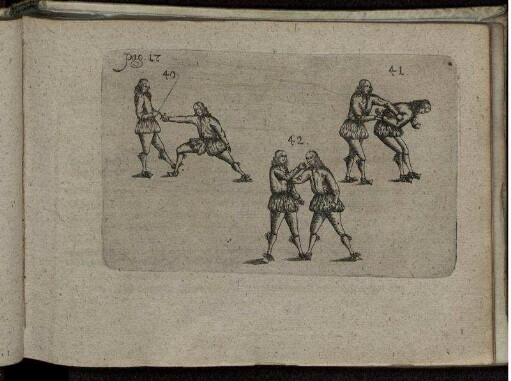 pag. 17
40
41
42.